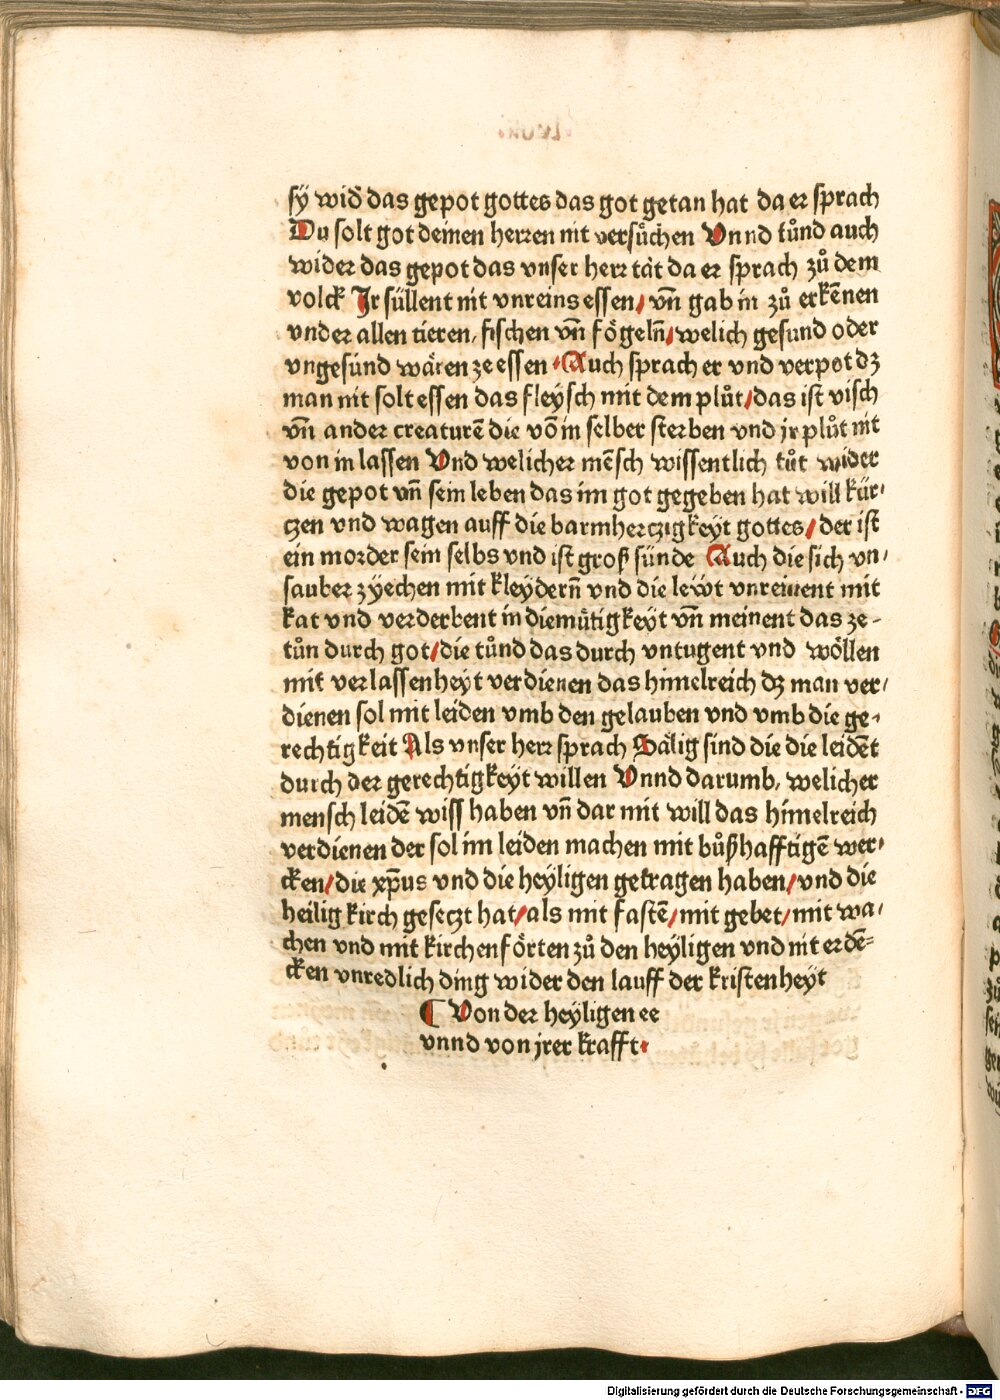 sÿ wid̄ das gepot gottes das got getan hat da er sprach
Du solt got deinen herren nit versůchen Vnnd tůnd auch
wider das gepot das vnser herr tät da er sprach zů dem
volck Ir süllent nit vnreins essen/ vn̄ gab in zů erkēnen
vnder allen tieren, fischen vn̄ fögeln̄/ welich gesund oder
vngesund wären ze essen · Auch sprach er vnd verpot dz
man nit solt essen das fleysch mit dem plůt/ das ist visch
vn̄ ander creaturē die vō in selber sterben vnd jr plůt nit
von in lassen Vnd welicher mēsch wissentlich tůt wider
die gepot vn̄ sein leben das im got gegeben hat will kür⸗
czen vnd wagen auff die barmherczigkeyt gottes/ der ist
ein morder sein selbs vnd ist groß sünde Auch die sich vn⸗
sauber zÿechen mit kleÿdern̄ vnd die lewt vnreinent mit
kat vnd verderbent in diemütigkeyt vn̄ meinent das ze⸗
tůn durch got/ die tůnd das durch vntugent vnd wöllen
mit verlassenheyt verdienen das himelreich dz man ver⸗
dienen sol mit leiden vmb den gelauben vnd vmb die ge⸗
rechtigkeit Als vnser herr sprach Sälig sind die die leidēt
durch der gerechtigkeyt willen Vnnd darumb, welicher
mensch leidē wiss haben vn̄ dar mit will das himelreich
verdienen der sol im leiden machen mit bůßhafftigē wer⸗
cken/ die xp̄us vnd die heÿligen getragen haben/ vnd die
heilig kirch geseczt hat/ als mit fastē/ mit gebet/ mit wa⸗
chen vnd mit kirchenförten zů den heÿligen vnd nit erdē⸗
cken vnredlich ding wider den lauff der kristenheyt
¶ Von der heÿligen ee
vnnd von jrer krafft·
Digitalisierung gefördert durch die Deutsche Forschungsgemeinschaft - DFG